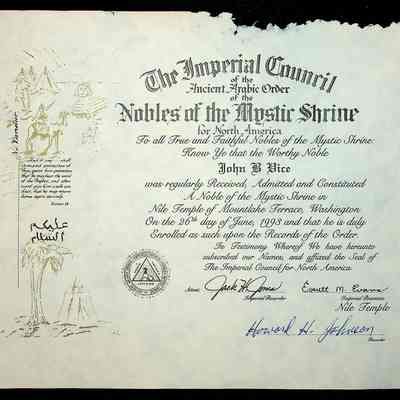 The Imperial Council
of the
Ancient Arabic Order
of the
Nobles of the Mystic Shrine
for North America
To all True and Faithful Nobles of the Mystic Shrine:
Know Ye that the Worthy Noble
John B Vice
was regularly Received, Admitted and Constituted
A Noble of the Mystic Shrine in
Nile Temple of Mountlake Terrace, Washington
On the 26th day of June, 1993 and that he is duly
Enrolled as such upon the Records of the Order.
In Testimony Whereof We have hereunto
subscribed our Names, and affixed the Seal of
The Imperial Council for North America.
Attest:
Imperial Recorder
Everett M. Evans
Imperial Potentate
Nile Temple
Howard H. Johnson
Recorder
عليكم
السلام